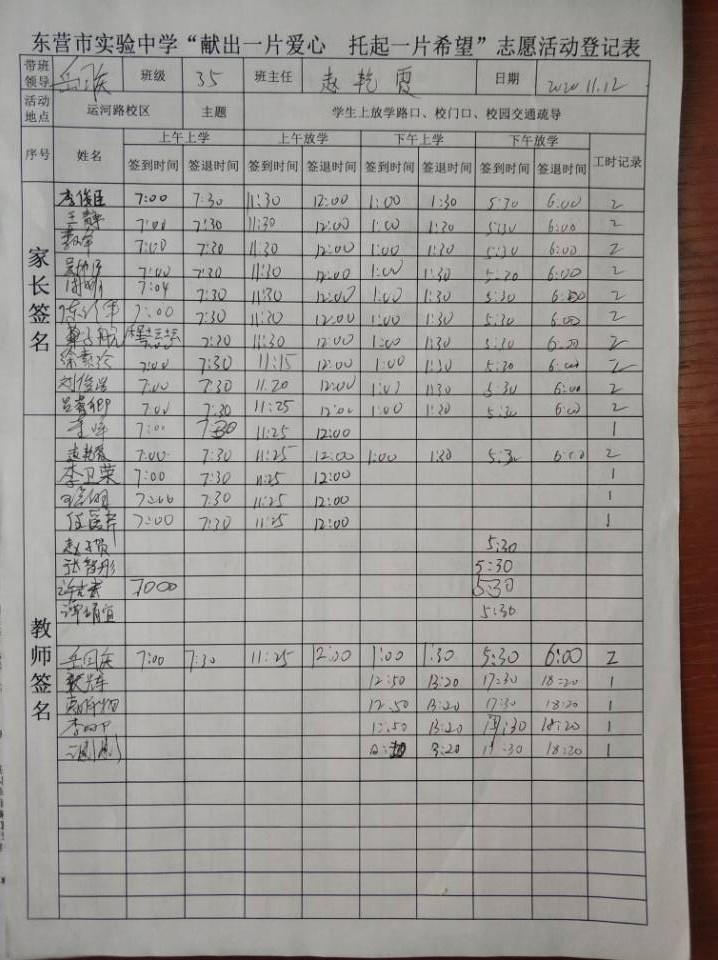 东营市实验中学“献出一片爱心 托起一片希望”志愿活动登记表
带班领导 班级 35 班主任 赵乾霞 日期 2020 11.12
活动地点 运河路校区 主题 学生上放学路口、校门口、校园交通疏导
序号 姓名 上午上学 上午放学 下午上学 下午放学 工时记录
签到时间 签退时间 签到时间 签退时间 签到时间 签退时间 签到时间 签退时间
家长签名
李俊臣 7:00 7:30 11:30 12:00 1:00 1:30 5:30 6:00 2
王静 7:00 7:30 11:30 12:00 1:00 1:30 5:30 6:00 2
7:00 7:30 11:30 12:00 1:00 1:30 5:30 6:00 2
7:00 7:30 11:30 12:00 1:00 1:30 5:30 6:00 2
7:04 7:30 11:30 12:00 1:00 1:30 5:30 6:00 2
7:00 7:30 11:30 12:00 1:00 1:30 5:30 6:00 2
7:30 11:30 12:00 1:00 1:30 5:30 6:00 2
徐素珍 7:00 7:30 11:15 12:00 1:00 1:30 5:30 6:00 2
刘俊 7:00 7:30 11:20 12:00 1:00 1:30 5:30 6:00 2
7:00 7:30 11:25 12:00 1:00 1:30 5:30 6:00 2
教师签名
7:00 7:30 11:25 12:00 1
赵乾霞 7:00 7:30 11:25 12:00 1:00 1:30 5:30 6:00 2
李卫荣 7:00 7:30 11:25 12:00 1
7:00 7:30 11:25 12:00 1
7:00 7:30 11:25 12:00 1
5:30
张智彤 5:30
7:00 5:30
5:30
岳国庆 7:00 7:30 11:25 12:00 1:00 1:30 5:30 6:00 2
12:50 13:20 17:30 18:20 1
12:50 13:20 17:30 18:20 1
12:50 13:20 17:30 18:20 1
13:20 17:30 18:20 1